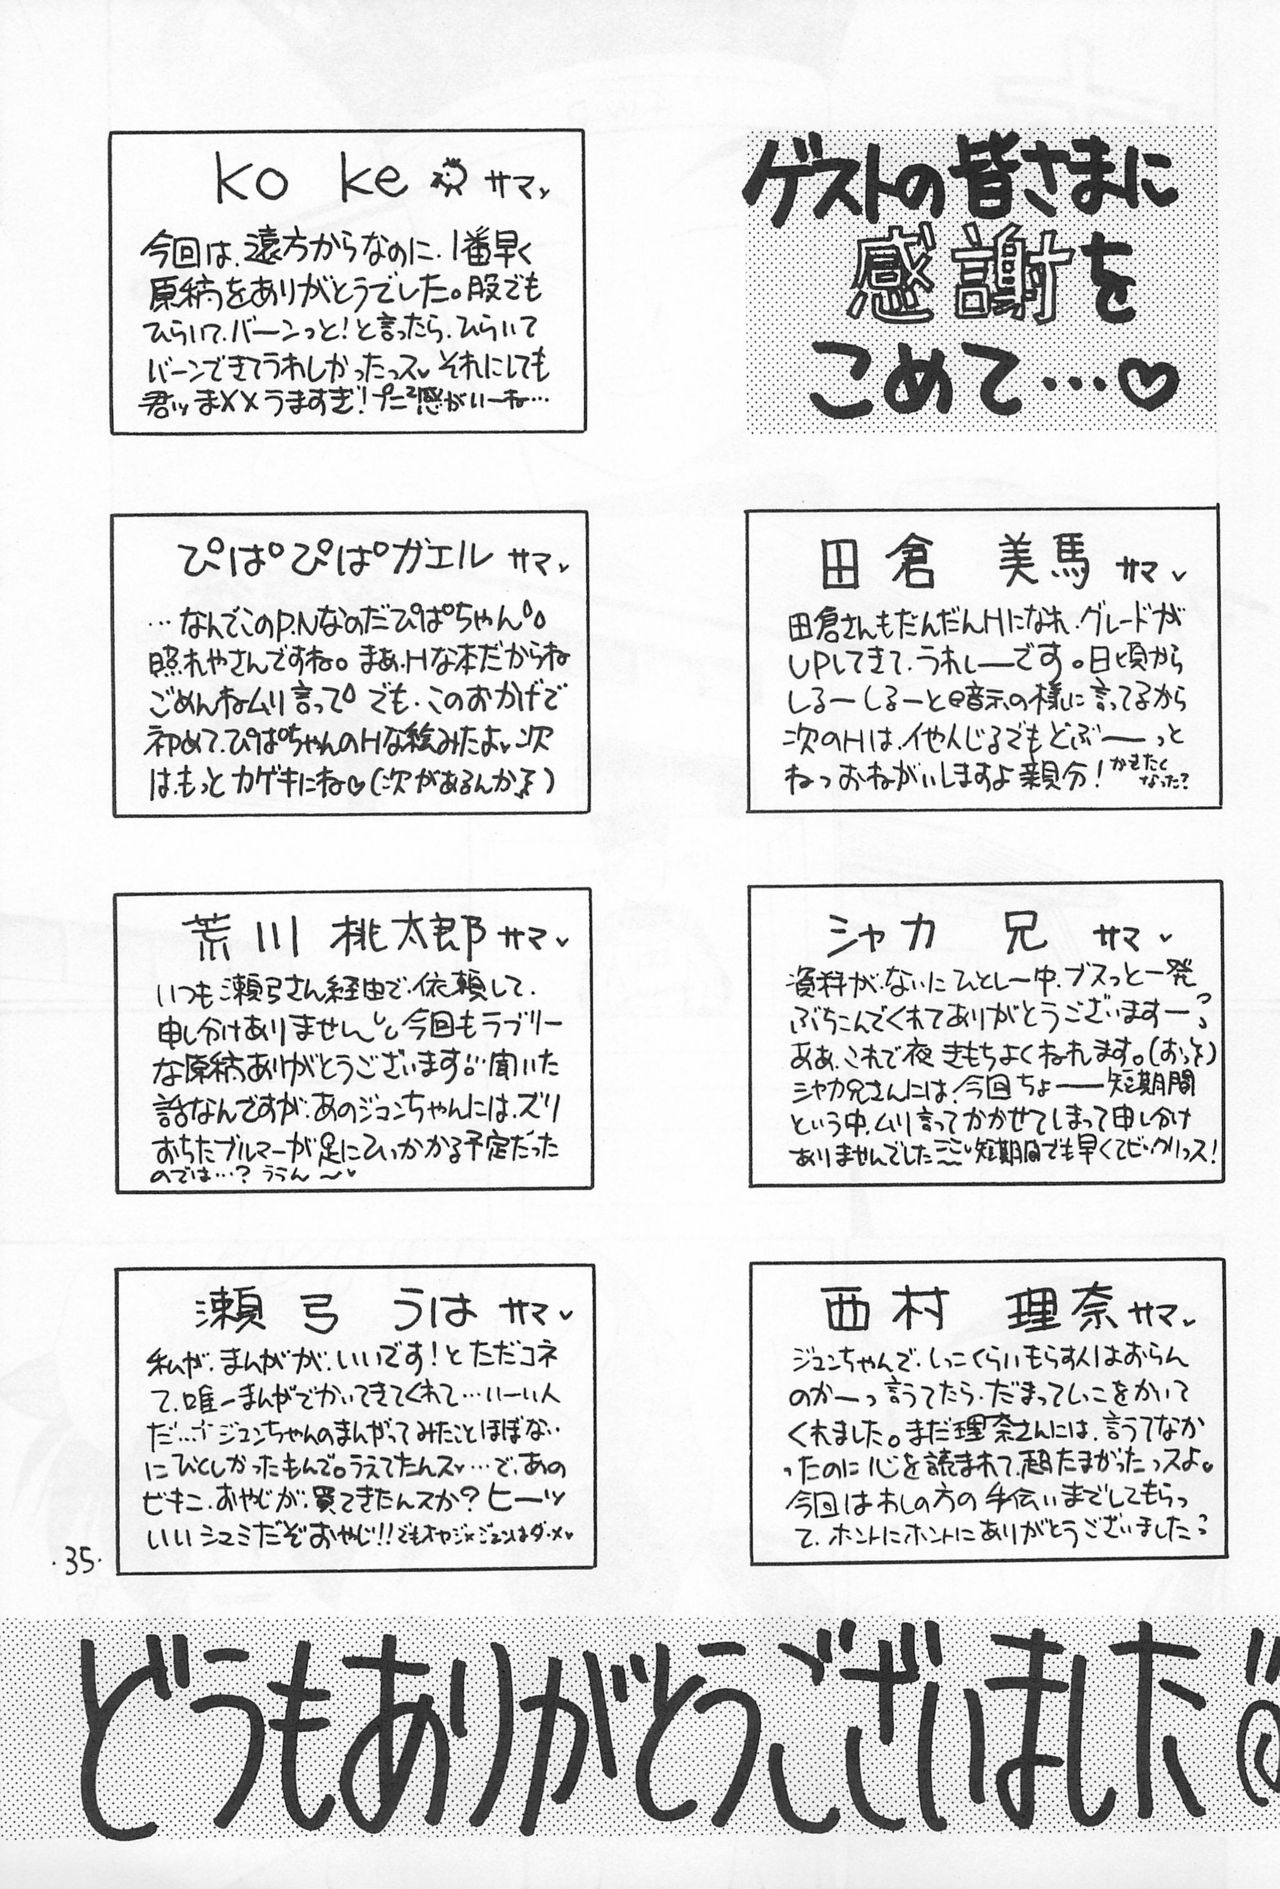 ゲストの皆さまに
感謝を
こめて…♡
田倉 美馬サマ
田倉さんもだんだんHになれ、グレードが
UPしてきて、うれしーです。日頃から
しるーしるーと@音示の様に言ってるから
次のHは、イヤんじるでもどぶーーっと
ねっおねがいしますよ親分!
かきたく
なった?
シャカ 兄 サマ
資料が、ないにひとしー中、ブスっと一発
ぶちこんでくれてありがとうございますーっ
ああ、これで夜きもちよくねれます。(おっそ)
シャカ兄さんには、今回ちょーー短期間
という中、ムリ言ってかかせてしまって申し分け
ありませんでした 短期間でも早くてビックリっス!
西村 理奈サマ
ジュンちゃんで、しっこくらいもらす人はおらん
のかーっ言うてたら、だまってしっこをかいて
くれました。まだ理奈さんには、言うてなか
ったのに心を読まれて、超たまがったっスよ。
今回はわしの方の手伝いまでしてもらっ
て、ホントにホントにありがとうございました
ko ke サマ
今回は、遠方からなのに、1番早く
原稿をありがとうでした。股でも
ひらいて、バーンっと!と言ったら、ひらいて
バーンできてうれしかったっス それにしても
君ッまXXうますぎ!プニ²感がいーね…
ぴぱぴぱガエル サマ
…なんでこのP.Nなのだぴぱちゃん
照れやさんですね。まあ、Hな本だからね
ごめんねムリ言って でも、このおかげで
初めて、ぴぱちゃんのHな絵みたよ 次
は、もっとカゲキにね♡(次があるんか)
荒川 桃太郎サマ
いつも瀬弓さん経由で、依頼して、
申し分けありません 今回もラブリー
な原稿ありがとうございます 聞いた
話なんですが、あのジュンちゃんには、ズリ
おちたブルマーが足にひっかかる予定だった
のでは…? ううん〜
瀬弓 うはサマ
私が、まんがが、いいです!とただコネ
て、唯一まんがでかいてきてくれて…いーい人
だ… ジュンちゃんのまんがってみたことほぼない
にひとしかったもんで。うえてたんス…で、あの
ビキニ、おやじが、買てきたんスか?ヒーッ
いいシュミだぞおやじ!!でもオヤジ×ジュンはダ・メ
・35・
どうもありがとうございました